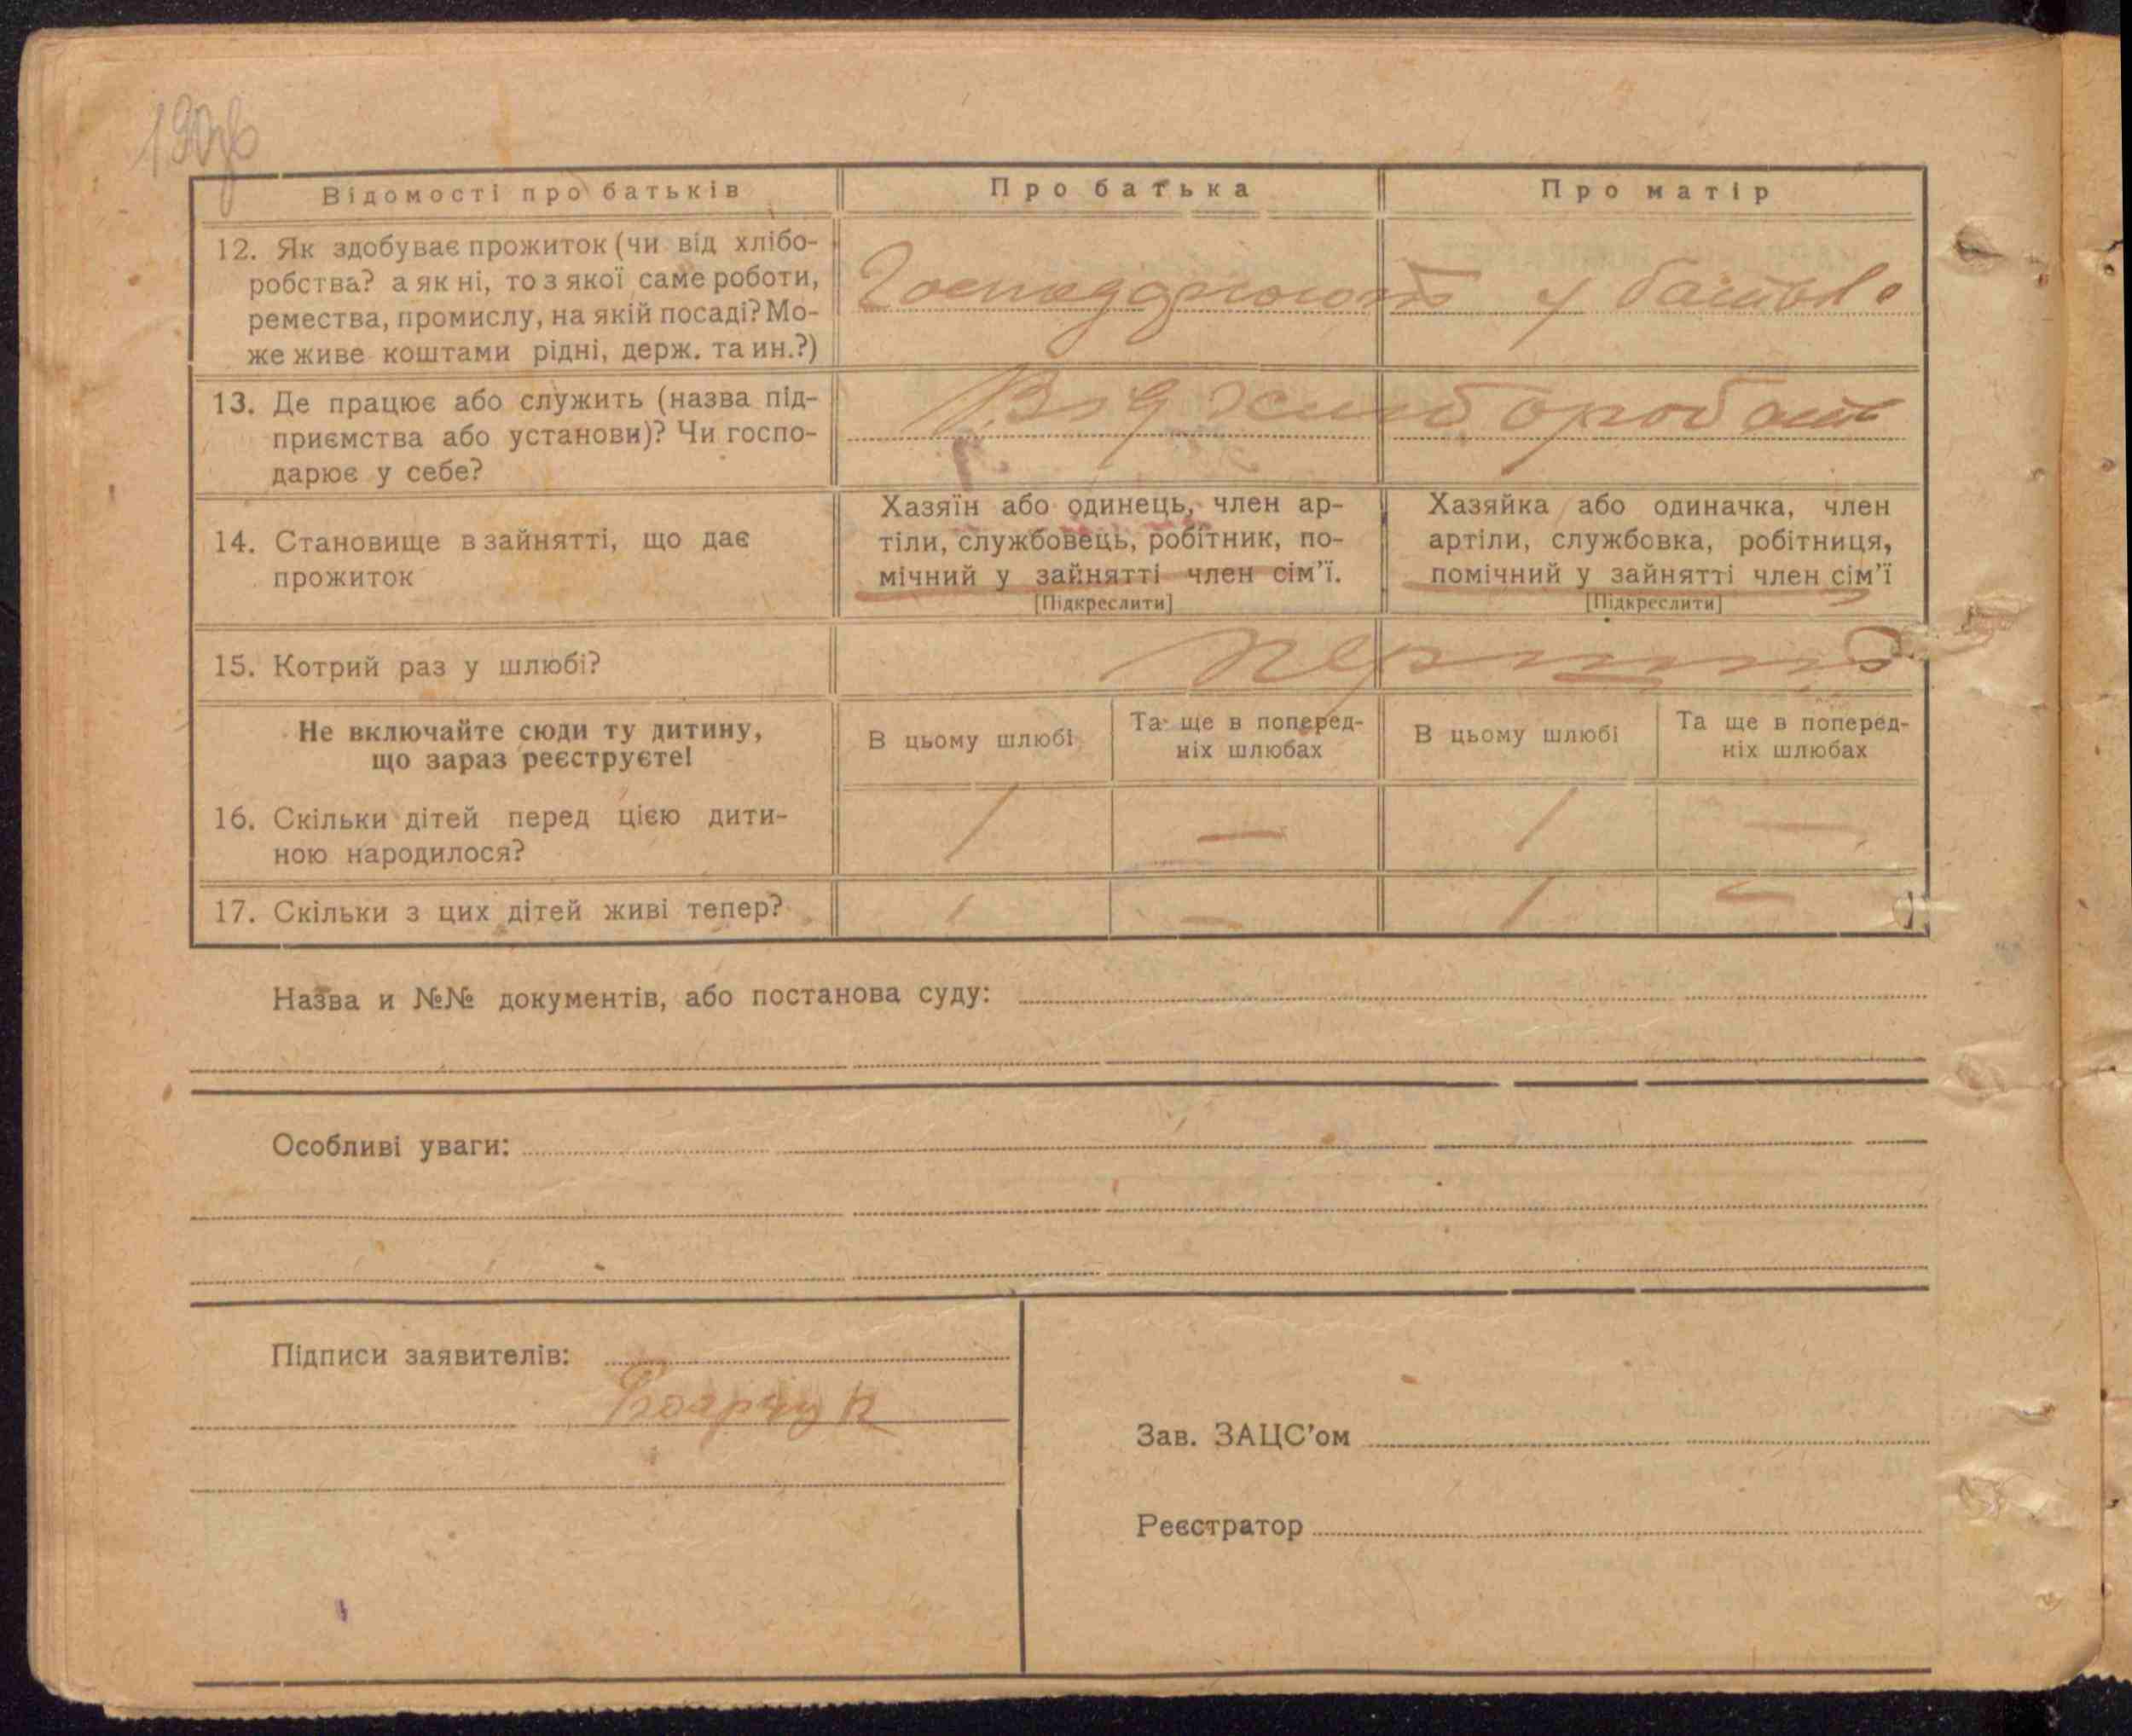 190зв
Відомості про батьків
Про батька
Про матір
12. Як здобуває прожиток (чи від хлібо-
робства? а як ні, то з якої саме роботи,
ремества, промислу, на якій посаді? Мо-
же живе коштами рідні, держ. та ин.?)
Господарюють у батьків
13. Де працює або служить (назва під-
приємства або установи)? Чи госпо-
дарює у себе?
Від хліборобст
14. Становище в зайнятті, що дає
прожиток
Хазяїн або одинець, член ар-
тіли, службовець, робітник, по-
мічний у зайнятті член сім'ї.
[Підкреслити]
Хазяйка або одиначка, член
артіли, службовка, робітниця,
помічний у зайнятті член сім'ї
[Підкреслити]
15. Котрий раз у шлюбі?
Не включайте сюди ту дитину,
що зараз реєструєте!
В цьому шлюбі
Та ще в поперед-
ніх шлюбах
В цьому шлюбі
Та ще в поперед-
ніх шлюбах
16. Скільки дітей перед цією дити-
ною народилося?
1 — 1 —
17. Скільки з цих дітей живі тепер?
1 — 1 —
Назва и №№ документів, або постанова суду:
Особливі уваги:
Підписи заявителів:
Боярчук
Зав. ЗАЦС'ом
Реєстратор